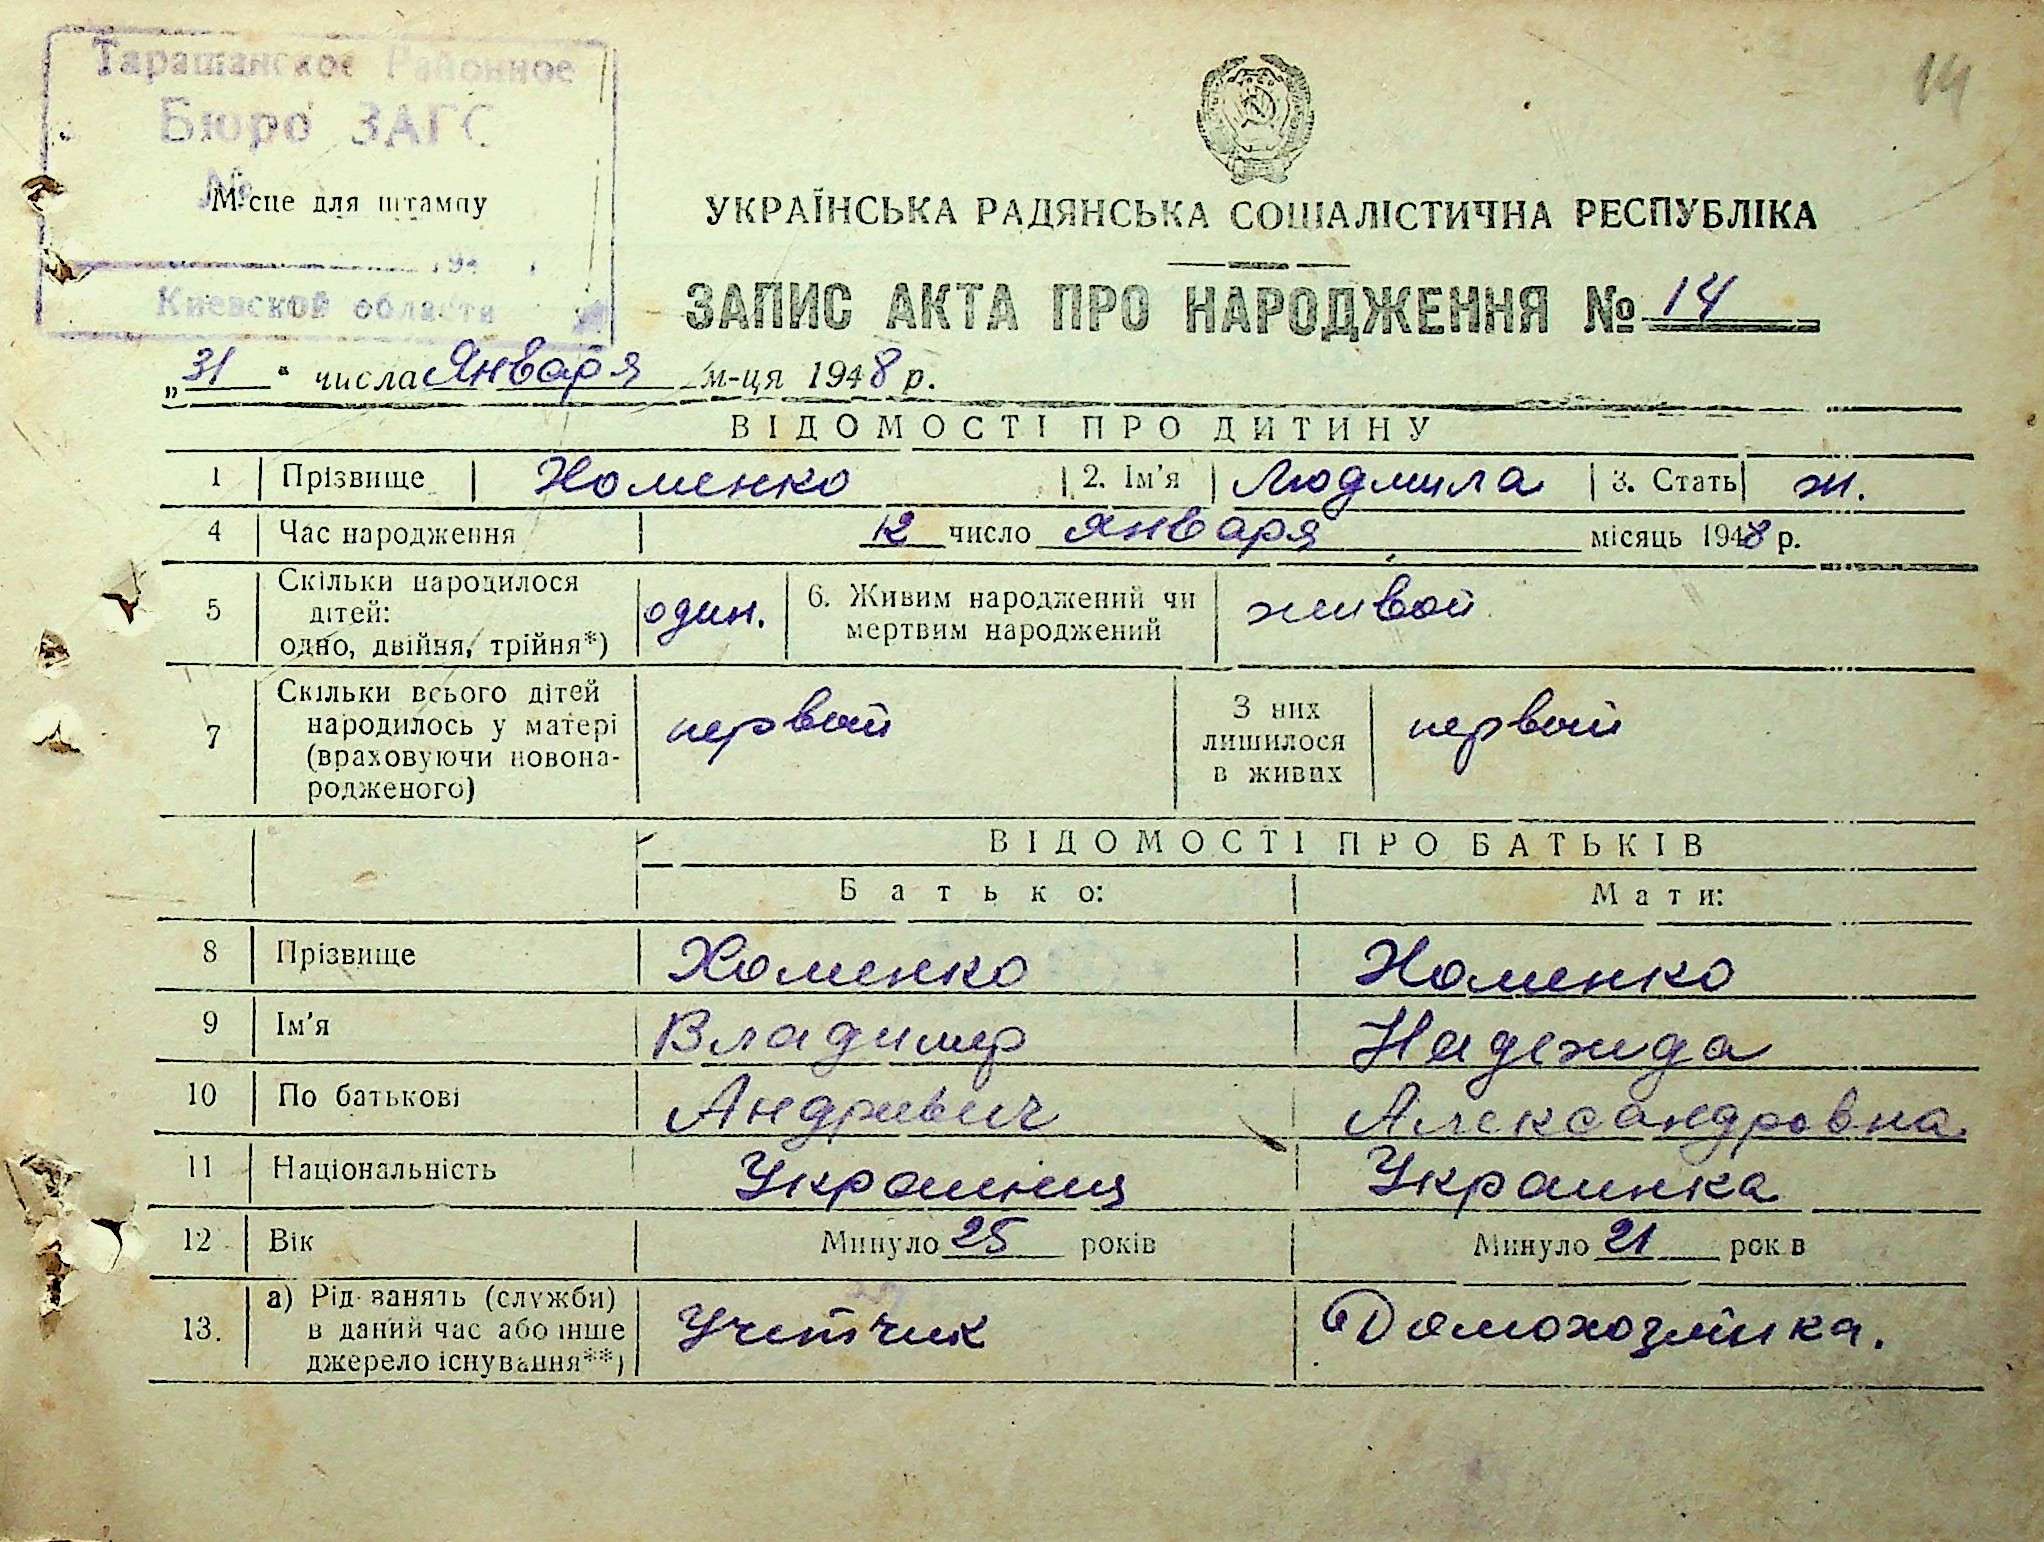 14
Тарашанское Районное
Бюро ЗАГС
№
Місце для штампу
194
Киевской области
УКРАЇНСЬКА РАДЯНСЬКА СОЦІАЛІСТИЧНА РЕСПУБЛІКА
ЗАПИС АКТА ПРО НАРОДЖЕННЯ № 14
„31“ числа Января м-ця 1948 р.
ВІДОМОСТІ ПРО ДИТИНУ
1 Прізвище Хоменко 2. Ім'я Людмила 3. Стать ж.
4 Час народження 12 число января місяць 1948 р.
5 Скільки народилося дітей: одно, двійня, трійня*) один. 6. Живим народжений чи мертвим народжений живой
7 Скільки всього дітей народилось у матері (враховуючи новонародженого) первый З них лишилося в живих первый
ВІДОМОСТІ ПРО БАТЬКІВ
Батько: Мати:
8 Прізвище Хоменко Хоменко
9 Ім'я Владимир Надежда
10 По батькові Андриевич Александровна
11 Національність Украинец Украинка
12 Вік Минуло 25 років Минуло 21 років
13. а) Рід занять (служби) в даний час або інше джерело існування**) Учетчик Домохозяйка.